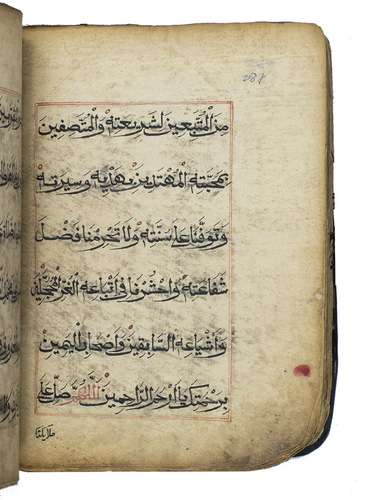 مِنَ الْمُتَّبِعِينَ لِشَرِيعَتِهِ وَالْمُتَّصِفِينَ
بِمَحَبَّتِهِ الْمُهْتَدِينَ بِهَدْيِهِ وَسِيرَتِهِ
وَتَوَفَّنَا عَلَى سُنَّتِهِ وَلَا تَحْرِمْنَا فَضْلَ
شَفَاعَتِهِ وَاحْشُرْنَا فِي اَتْبَاعِهِ الْغُرِّ الْمُحَجَّلِينَ
وَاَشْيَاعِهِ السَّابِقِينَ وَاَصْحَابِ الْيَمِينِ
بِرَحْمَتِكَ يَا اَرْحَمَ الرَّاحِمِينَ اَللّٰهُمَّ صَلِّ عَلَى